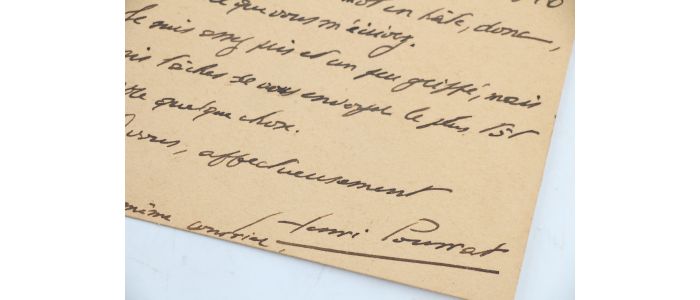 mot en hâte, donc,
ce que vous m'écrivez.
Je suis assez pris et un peu grippé, mais
tâcher de vous envoyer le plus tôt
quelque chose.
vous, affectueusement
même courrier,
Henri Pourrat